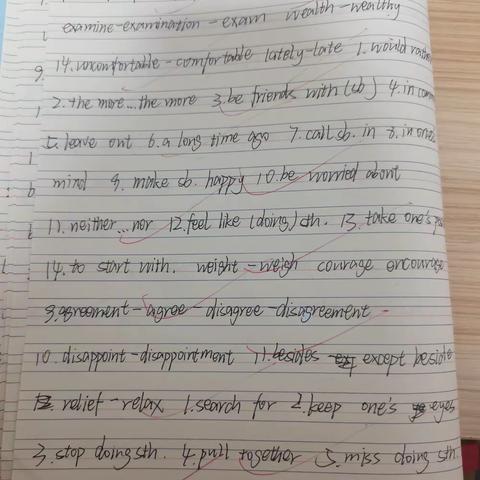 examine-examination-exam wealth-wealthy
14. uncomfortable-comfortable lately-late 1. would rather
2. the more...the more 3. be friends with (sb) 4. in
5. leave out 6. a long time ago 7. call sb. in 8. in one's
mind 9. make sb. happy 10. be worried about
11. neither...nor 12. feel like (doing) sth. 13. take one's
14. to start with. weight-weigh courage encourage
9. agreement-agree-disagree-disagreement
10. disappoint-disappointment 11. besides- except beside
relief-relax 1. search for 2. keep one's eyes
3. stop doing sth. 4. pull together 5. miss doing sth.